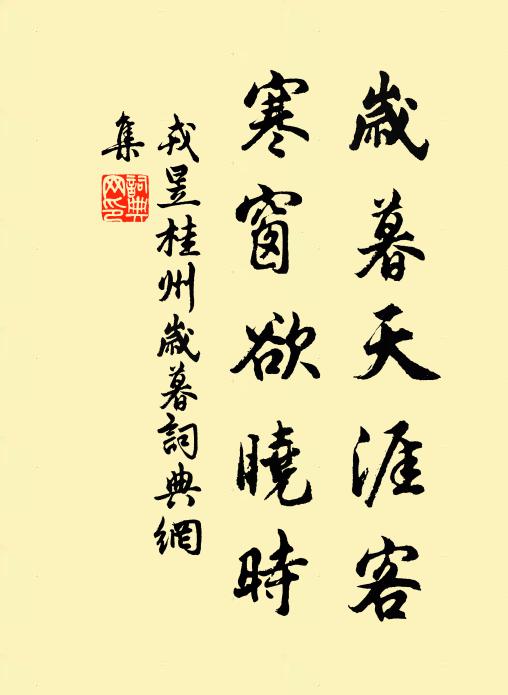 歲暮天涯客
寒窗欲曉時
戎昱桂州歲暮詞典網
集
詞典
网印